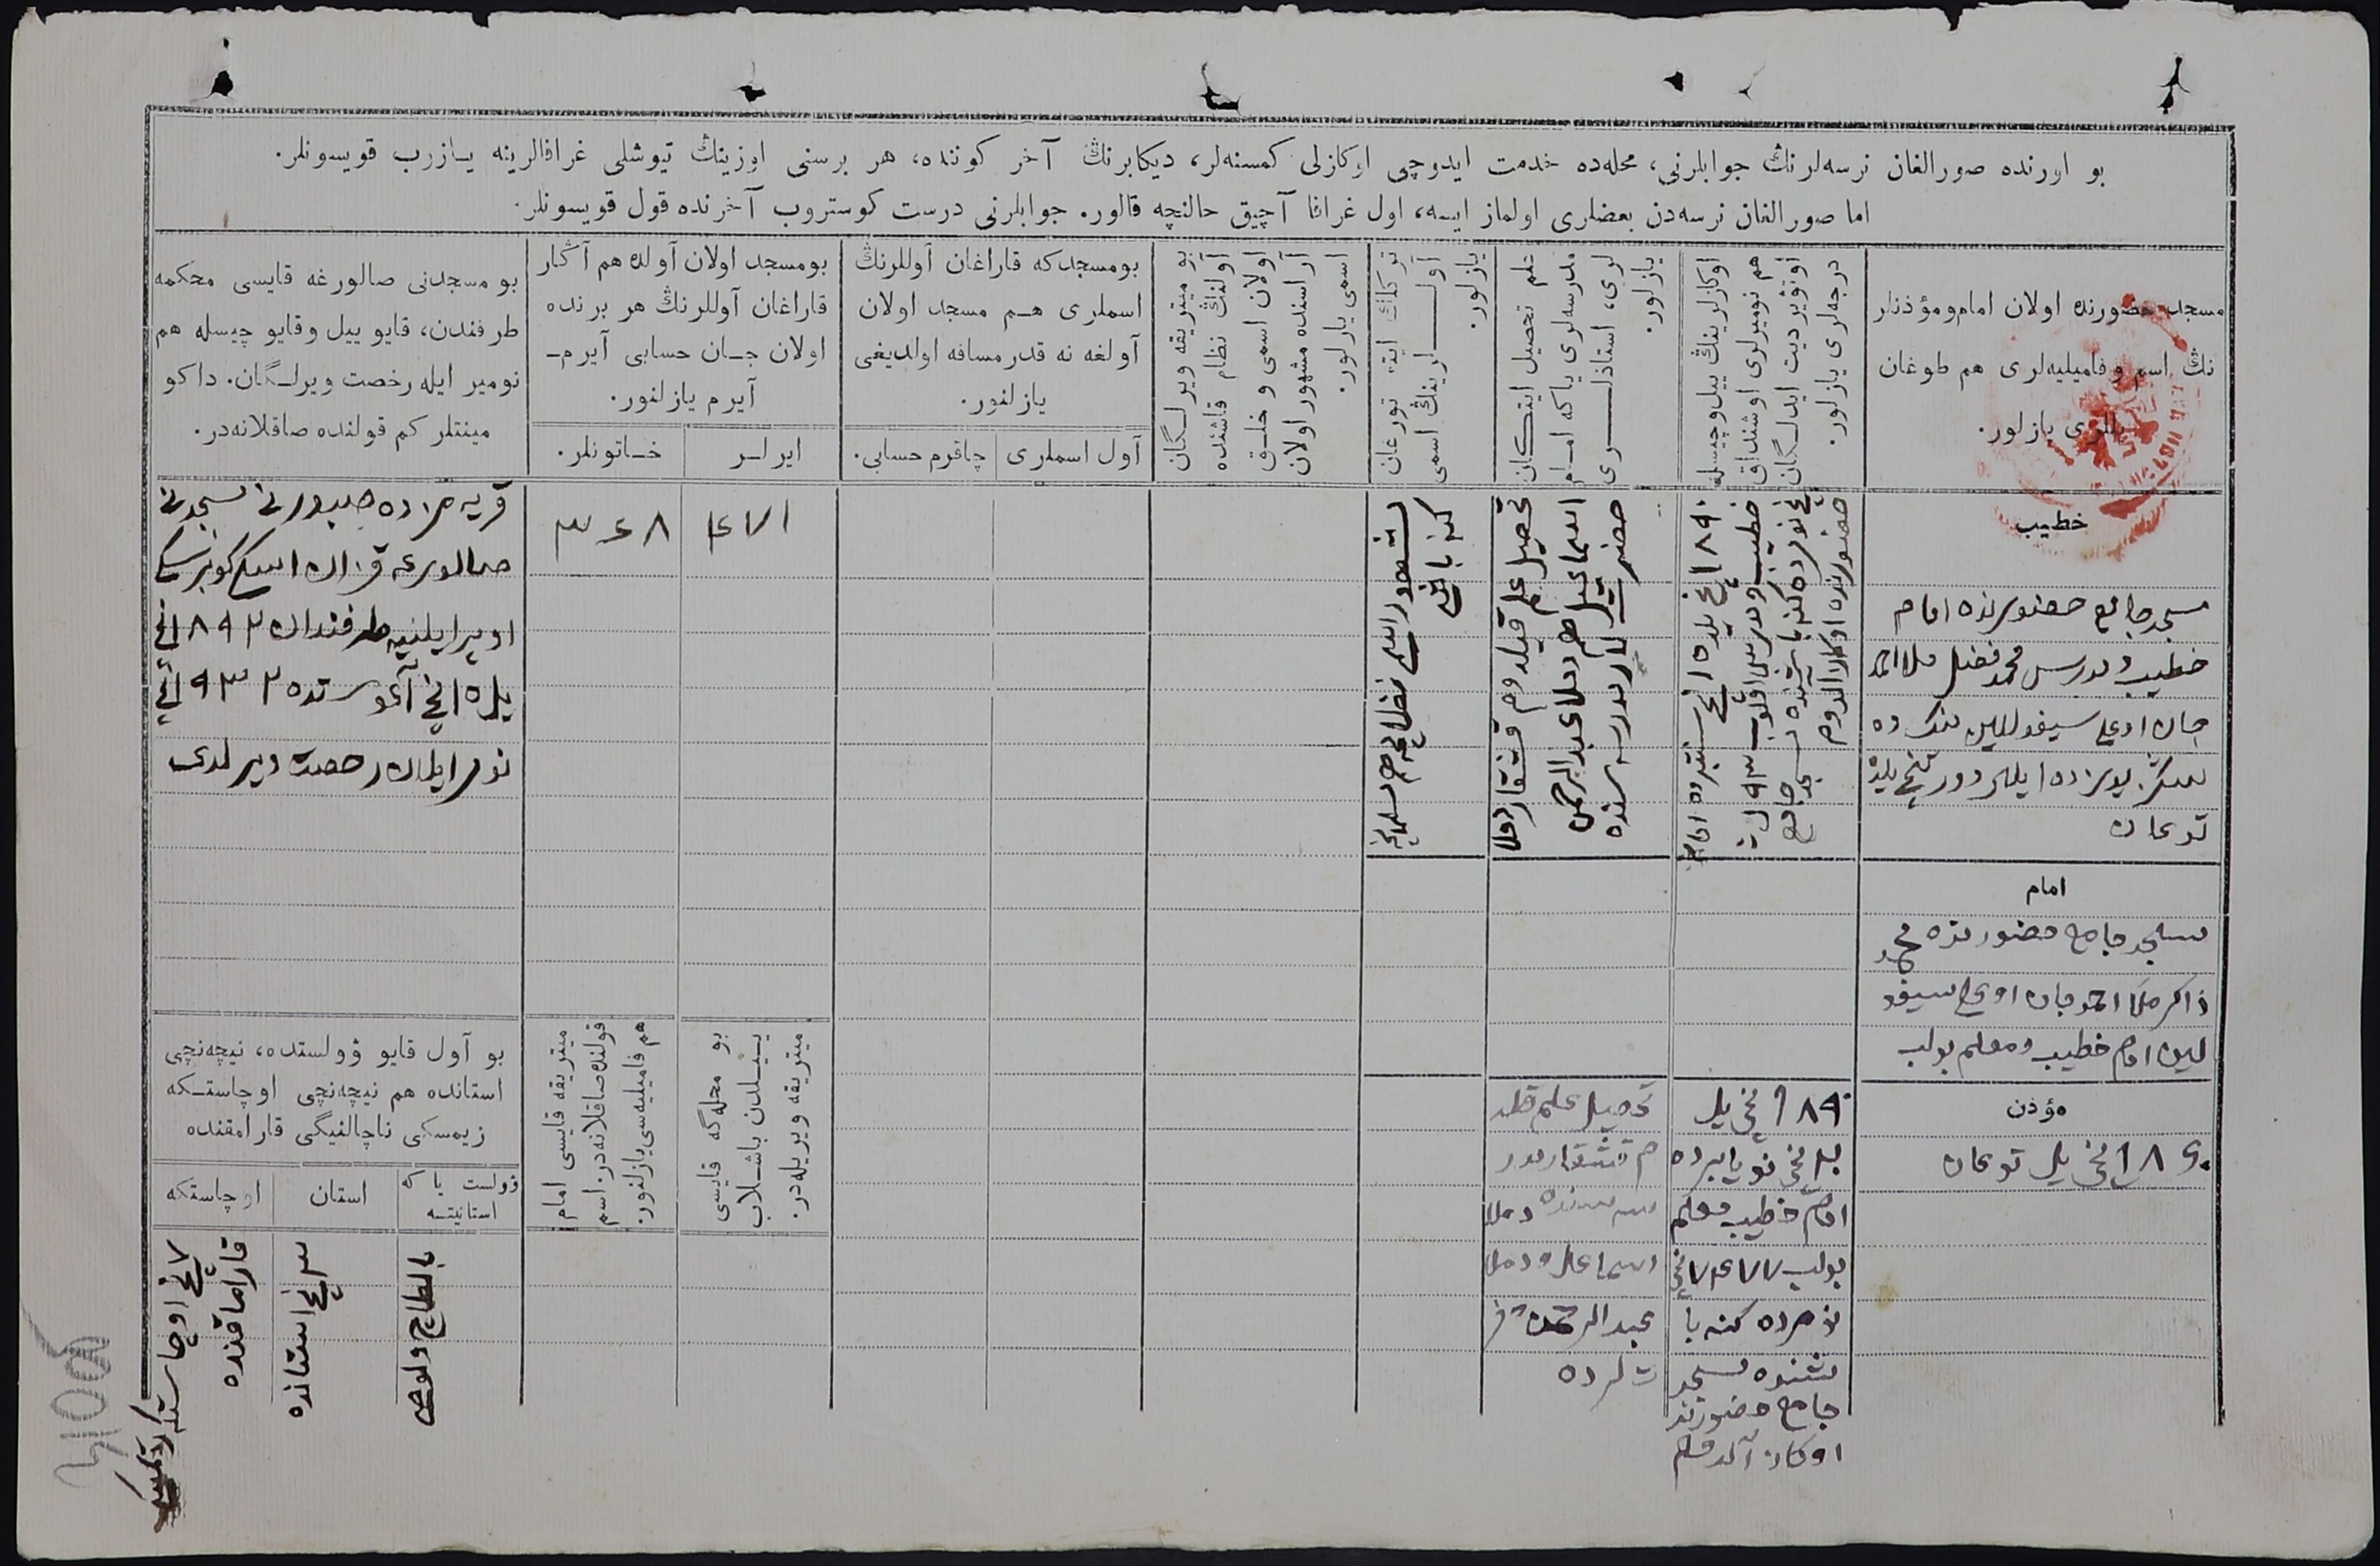 بو اورنده صورالغان نرسه‌لرنڭ جوابلرنی، محله‌ده خدمت ایدوچی اوكازلی كمسنه‌لر، دیكابرنڭ آخر كوننده، هر برسنی اوزینڭ تیوشلی غرافالرینه یازرب قویسونلر.
اما صورالغان نرسه‌دن بعضلری اولماز ایسه، اول غرافا آچیق حالنچه قالور. جوابلرنی درست كوستروب آخرنده قول قویسونلر.
مسجد حضورنده اولان امام‌ومؤذنلر
نڭ اسم وفامیلیه‌لری هم طوغان
یللری یازلور.
اوكازلرینڭ ییل‌وچیسله
هم نومیرلری اوشنداق
اوتوێردیت ایدلگان
درجه‌لری یازلور.
علم تحصیل ایتكان
مدرسه‌لری یاكه امام
لری، استاذلری
یازلور.
تركلك ایته تورغان
آوللرینڭ اسمی
یازلور.
بو میتریقه ویرلگان
آولنڭ نظام قاشنده
اولان اسمی و خلق
آراسنده مشهور اولان
اسمی یازلور.
بومسجدكه قاراغان آوللرنڭ
اسملری هم مسجد اولان
آولغه نه قدر مسافه اولدیغی
یازلنور.
آول اسملری
چاقرم حسابی.
بومسجد اولان آولده هم آڭار
قاراغان آوللرنڭ هر برنده
اولان جان حسابی آیرم-
آیرم یازلنور.
ایرلر
خاتونلر.
بو مسجدنی صالورغه قایسی محكمه
طرفندن، قایو ییل وقایو چیسله هم
نومیر ایله رخصت ویرلگان. داكو
مینتلر كم قولنده صاقلانه‌در.
خطیب
مسجد جامع حضورنده امام
خطیب و مدرس محمد فضل ملا احمد
جان اوغلی سیفوللین منك ده
سكز یوزده ایللی دورتنچی یلده
توغان
خطیب و مدرس
حضورنده
تحصیل علم قیلدوم قشقار ده ملا
اسماعیل هم دملا عبدالرحمن
حضرتلار مدرسه سنده
كنه باشی
٤٧١
٣٤٨
قریه مزده جیدرنی مسجدنی
صالورغه قزان اسكی گوبرنسكی
طرفندان ١٨٩٢ نچی
یل ١٥ نچی آغوستده ٩٣٢ نچی
نومر ایلان رخصت ویرلدی
امام
مسجد جامع حضورنده محمد
ذاكر ملا احمدجان اوغلی سیفو
للین امام خطیب و معلم بولب
مؤذن
١٨٦٠ نچی یل توغان
١٨٩٠ نچی یل
نویابرده
امام خطیب معلم
بولب ٧٤٧٧ نچی
نومرده كنه با
شنده مسجد
جامع حضورنده
اوكاز آلدم
تحصیل علم قلد
م قشقار مدر
سه سنده دملا
اسماعیل و دملا
عبدالرحمن حضر
ت لرده
بو محله‌گه قایسی
ییلدن باشلاب
میتریقه ویریله‌در.
میتریقه قایسی امام
قولنده صاقلانه‌در: اسم
هم فامیلیه‌سی یازلنور.
بو آول قایو ۋولستده، نیچه‌نچی
استانده هم نیچه‌نچی اوچاستكه
زیمسكی ناچالنیگی قارامقنده
ۋولست یاكه
استانیتسه
استان
اوچاستكه
بالطاچ ولوصی
٣ نچی استانده
٧ نچی اوچاستكه
قاراماقنده